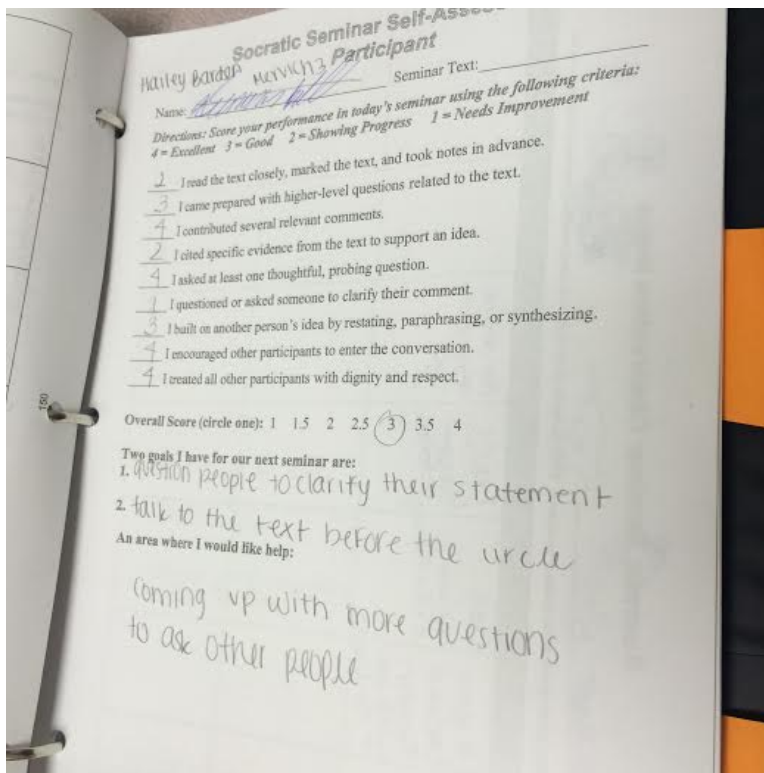 Socratic Seminar Self-Assess
Participant
Hailey Barden
Name: Seminar Text:
Directions: Score your performance in today's seminar using the following criteria:
4 = Excellent 3 = Good 2 = Showing Progress 1 = Needs Improvement
2 I read the text closely, marked the text, and took notes in advance.
3 I came prepared with higher-level questions related to the text.
4 I contributed several relevant comments.
2 I cited specific evidence from the text to support an idea.
4 I asked at least one thoughtful, probing question.
1 I questioned or asked someone to clarify their comment.
3 I built on another person's idea by restating, paraphrasing, or synthesizing.
4 I encouraged other participants to enter the conversation.
4 I treated all other participants with dignity and respect.
Overall Score (circle one): 1 1.5 2 2.5 3 3.5 4
Two goals I have for our next seminar are:
1. question people to clarify their statement
2. talk to the text before the circle
An area where I would like help:
coming up with more questions
to ask other people
150